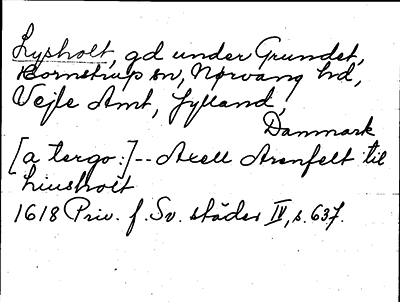 Lysholt, gd under Grundet,
Hornstrup sn, Nørvang hd,
Vejle Amt, Jylland,
Danmark
[a tergo:]-- Axell Arenfelt til
Liusholt
1618 Priv. f. Sv. städer IV, s. 637.